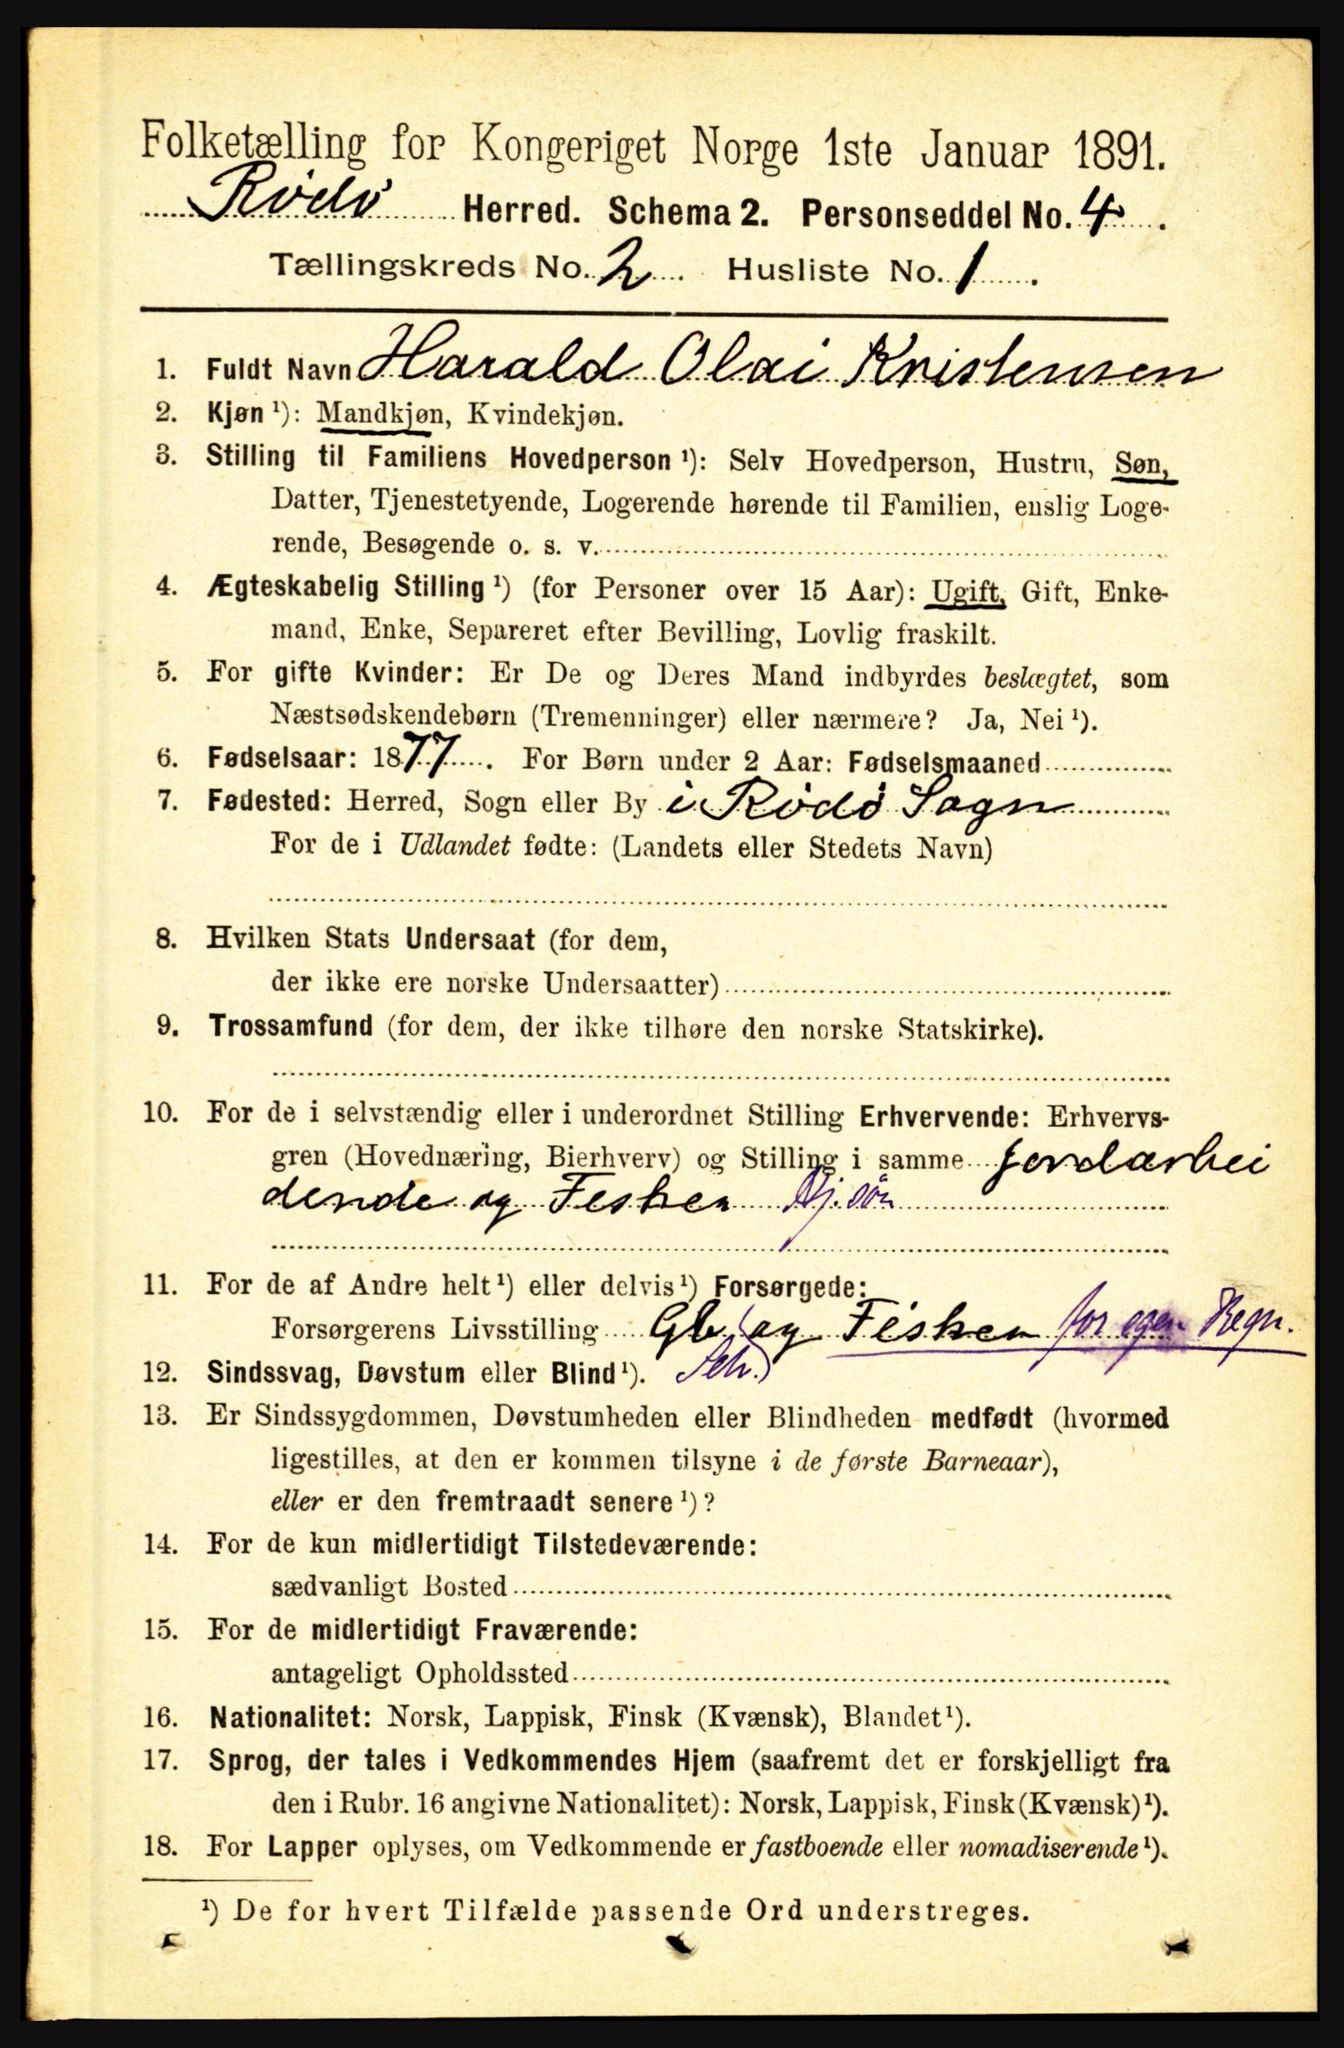 Folketælling for Kongeriget Norge 1ste Januar 1891.
Rødø Herred. Schema 2. Personseddel No. 4.
Tællingskreds No. 2. Husliste No. 1.
1. Fuldt Navn Harald Olai Kristensen
2. Kjøn ¹): Mandkjøn, Kvindekjøn.
3. Stilling til Familiens Hovedperson ¹): Selv Hovedperson, Hustru, Søn,
Datter, Tjenestetyende, Logerende hørende til Familien, enslig Loge-
rende, Besøgende o. s. v.
4. Ægteskabelig Stilling ¹) (for Personer over 15 Aar): Ugift, Gift, Enke-
mand, Enke, Separeret efter Bevilling, Lovlig fraskilt.
5. For gifte Kvinder: Er De og Deres Mand indbyrdes beslægtet, som
Næstsødskendebørn (Tremenninger) eller nærmere? Ja, Nei ¹).
6. Fødselsaar: 1877. For Børn under 2 Aar: Fødselsmaaned
7. Fødested: Herred, Sogn eller By i Rødø Sogn
For de i Udlandet fødte: (Landets eller Stedets Navn)
8. Hvilken Stats Undersaat (for dem,
der ikke ere norske Undersaatter)
9. Trossamfund (for dem, der ikke tilhøre den norske Statskirke).
10. For de i selvstændig eller i underordnet Stilling Erhvervende: Erhvervs-
gren (Hovednæring, Bierhverv) og Stilling i samme jordarbei
dende og Fisker Hj. søn
11. For de af Andre helt ¹) eller delvis ¹) Forsørgede:
Forsørgerens Livsstilling Gb og Fisker for egen Regn.
12. Sindssvag, Døvstum eller Blind ¹). Selv.
13. Er Sindssygdommen, Døvstumheden eller Blindheden medfødt (hvormed
ligestilles, at den er kommen tilsyne i de første Barneaar),
eller er den fremtraadt senere ¹)?
14. For de kun midlertidigt Tilstedeværende:
sædvanligt Bosted
15. For de midlertidigt Fraværende:
antageligt Opholdssted
16. Nationalitet: Norsk, Lappisk, Finsk (Kvænsk), Blandet ¹).
17. Sprog, der tales i Vedkommendes Hjem (saafremt det er forskjelligt fra
den i Rubr. 16 angivne Nationalitet): Norsk, Lappisk, Finsk (Kvænsk) ¹).
18. For Lapper oplyses, om Vedkommende er fastboende eller nomadiserende ¹).
¹) De for hvert Tilfælde passende Ord understreges.